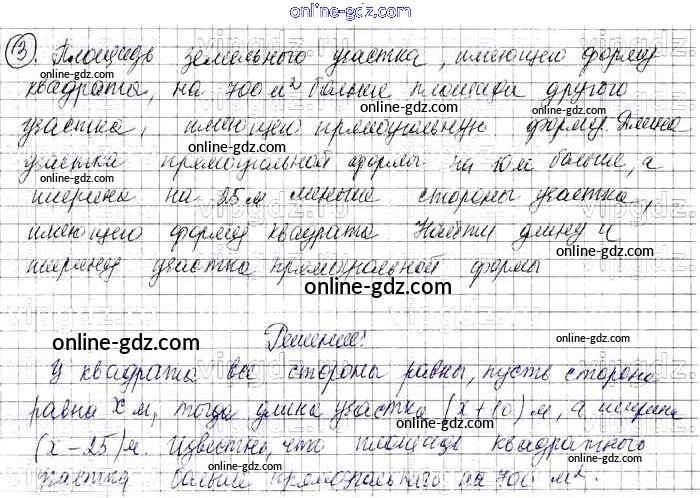 online-gdz.com
3. Площадь земельного участка, имеющего форму
online-gdz.com
квадрата, на 700 м² больше площади другого
online-gdz.com
участка, имеющего прямоугольную форму. Длина
online-gdz.com
участка прямоугольной формы на 10 м больше, а
online-gdz.com
ширина на 25 м меньше стороны участка,
vipgdz.ru
имеющего форму квадрата. Найти длину и
ширину участка прямоугольной формы
online-gdz.com
online-gdz.com
Решение:
У квадрата все стороны равны, пусть сторона
равна x м, тогда длина участка (x+10) м, а ширина
online-gdz.com
(x-25) м. Известно, что площадь квадратного
участка больше прямоугольного на 700 м².
online-gdz.com